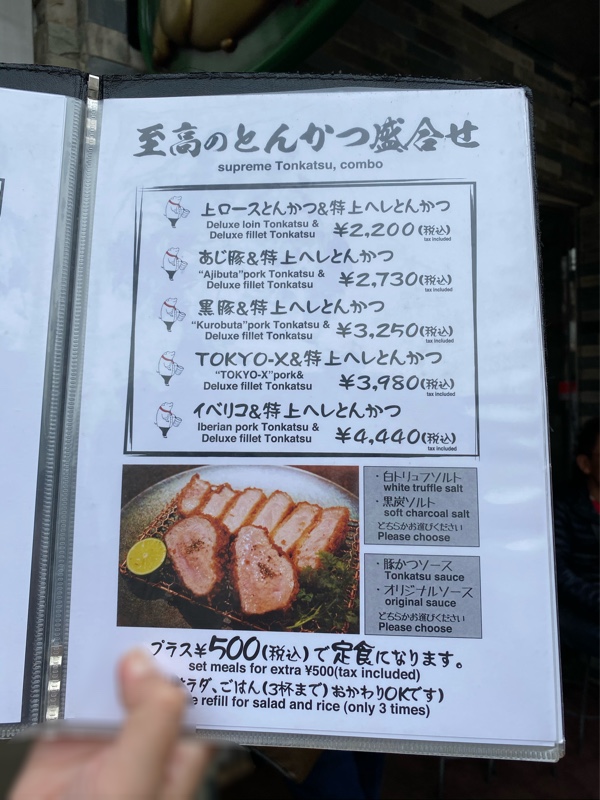 至高のとんかつ盛合せ
supreme Tonkatsu, combo
上ロースとんかつ&特上ヘレとんかつ
Deluxe loin Tonkatsu &
Deluxe fillet Tonkatsu
¥2,200(税込)
tax included
あじ豚&特上ヘレとんかつ
"Ajibuta"pork Tonkatsu &
Deluxe fillet Tonkatsu
¥2,730(税込)
tax included
黒豚&特上ヘレとんかつ
"Kurobuta"pork Tonkatsu &
Deluxe fillet Tonkatsu
¥3,250(税込)
tax included
TOKYO-X&特上ヘレとんかつ
"TOKYO-X"pork&
Deluxe fillet Tonkatsu
¥3,980(税込)
tax included
イベリコ&特上ヘレとんかつ
Iberian pork Tonkatsu &
Deluxe fillet Tonkatsu
¥4,440(税込)
tax included
・白トリュフソルト
white truffle salt
・黒炭ソルト
soft charcoal salt
どちらかお選びください
Please choose
・豚かつソース
Tonkatsu sauce
・オリジナルソース
original sauce
どちらかお選びください
Please choose
プラス¥500(税込)で定食になります。
set meals for extra ¥500(tax included)
ラダ、ごはん(3杯まで)おかわりOKです)
refill for salad and rice (only 3 times)